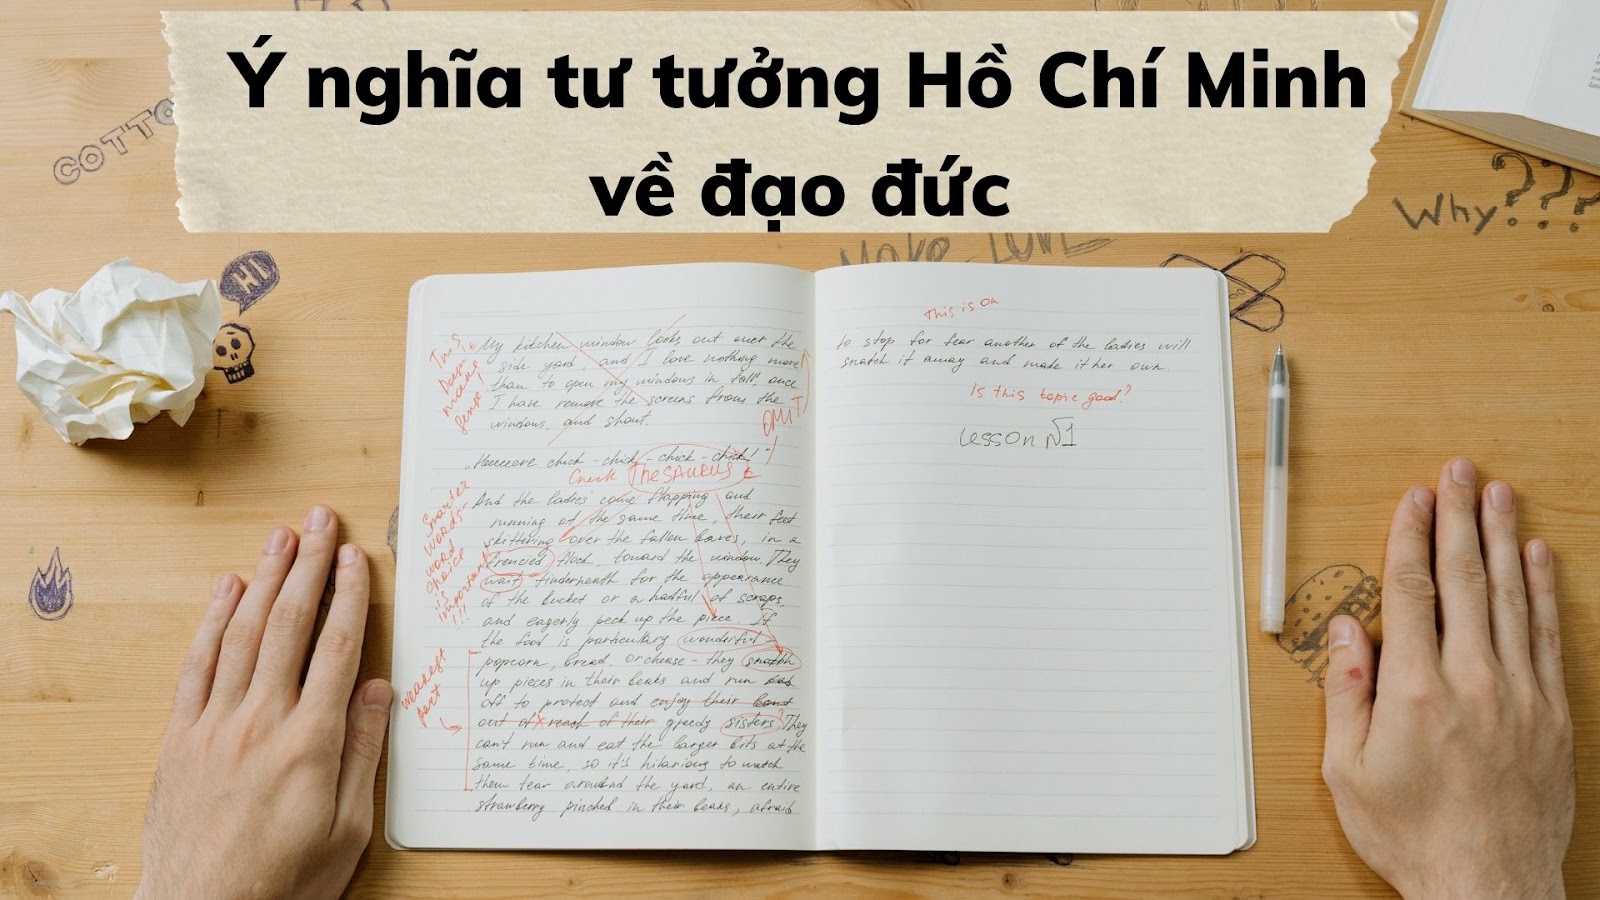 Ý nghĩa tư tưởng Hồ Chí Minh
về đạo đức
COTTO
Why???
Make LOVE
HI
This
Doesn't
make
sense!
My kitchen window looks out over the
side yard, and I love nothing more
than to open my windows in fall, once
I have remove the screens from the
windows, and shout.
OMIT
chick - chick - chick - chick!"
Check THESAURUS
Smarter
words,
word
choice
is
important
!!!
And the ladies come flapping and
running at the same time, their feet
skettering over the fallen leaves, in a
frenzied flock, toward the window. They
wait underneath for the appearance
of the bucket or a hadful of scraps,
and eagerly peck up the piece. If
the food is particulary wonderful -
popcorn, bread, or chease - they snatch
up pieces in their beaks and run
off to protect and enjoy their
out of reach of their greedy sisters? They
can't run and eat the larger bits at the
same time, so it's hilarious to watch
them tear around the yard, an entire
strawberry pinched in their beaks, afraid
weakest
part
This is on
to stop for fear another of the ladies will
snatch it away and make it her own.
Is this topic good?
Lesson №1